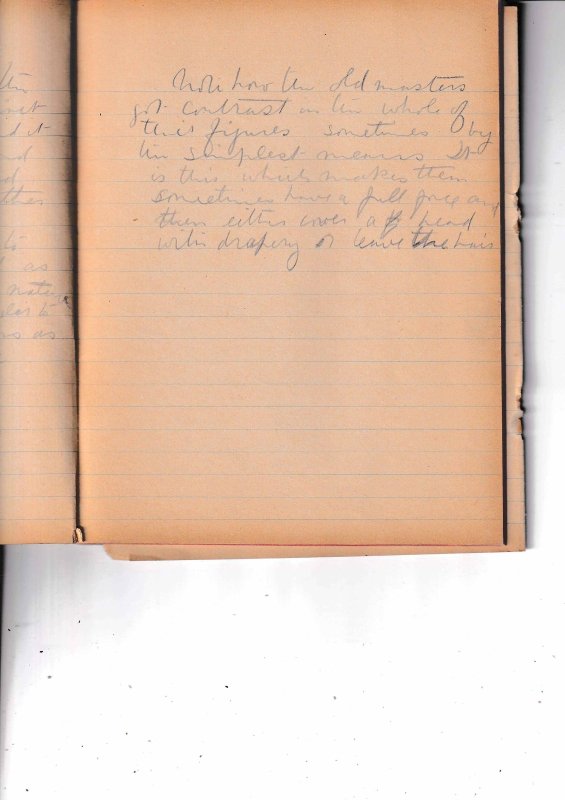 Note how the old masters
got contrast in the whole of
their figures sometimes by
the simplest means It
is this which makes them
sometimes have a full face and
then either cover a head
with drapery or leave the hair
it
d it
nd
d
ther
to
as
as